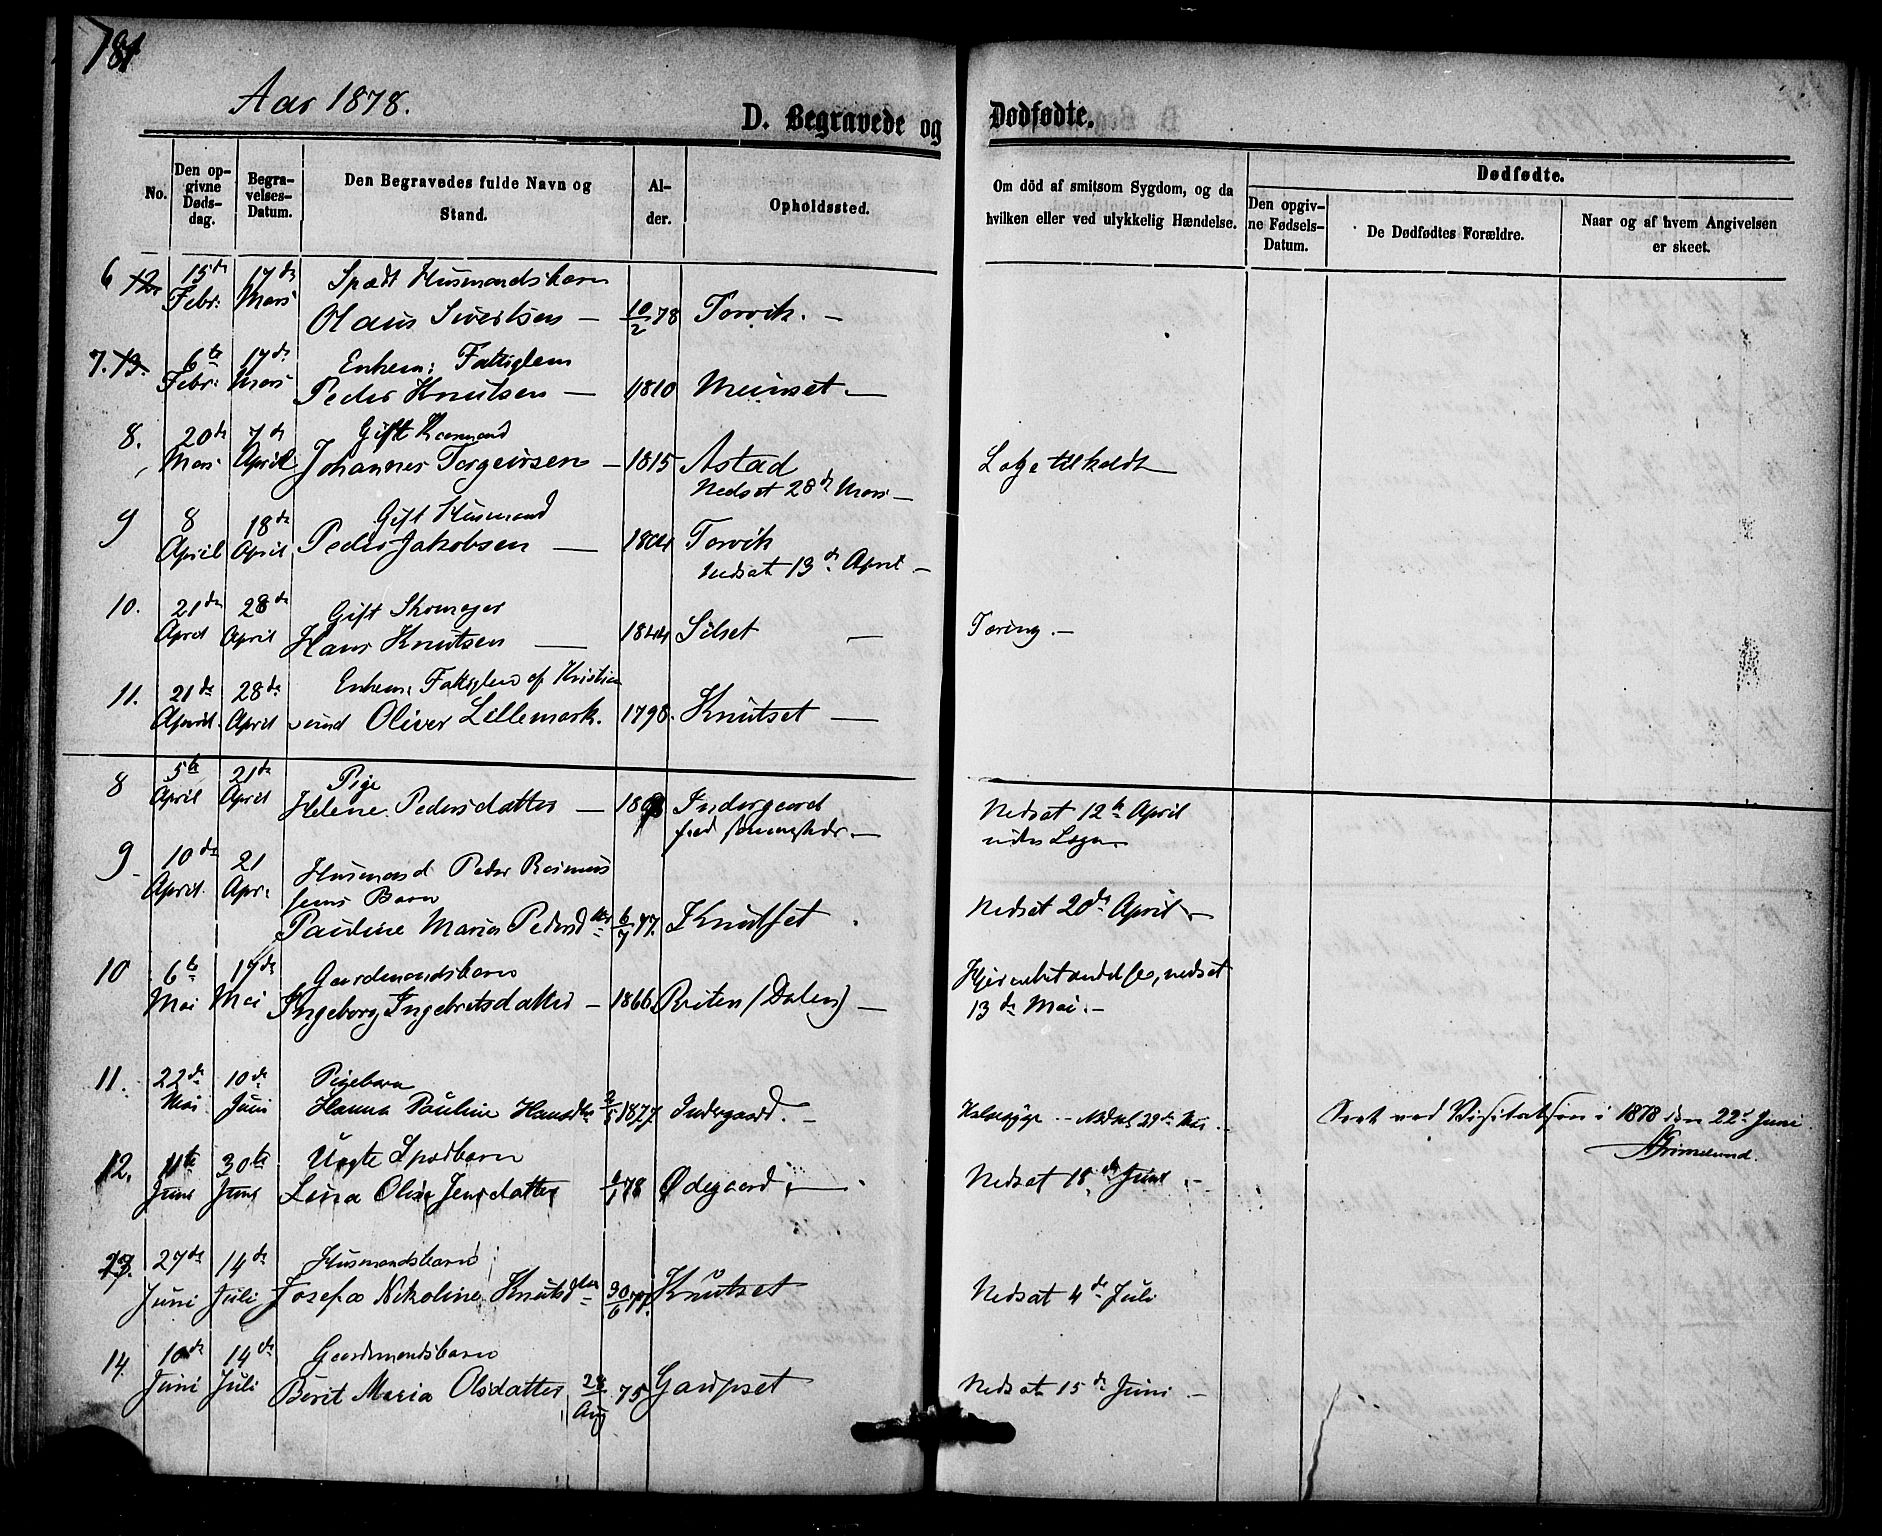 781
Aar 1878.
D. Begravede og Dødfødte.
No.
Den opgivne Døds-dag.
Begravelses-Datum.
Den Begravedes fulde Navn og Stand.
Alder.
Opholdssted.
Om död af smitsom Sygdom, og da hvilken eller ved ulykkelig Hændelse.
Dødfødte.
Den opgivne Fødsels-Datum.
De Dødfødtes Forældre.
Naar og af hvem Angivelsen er skeet.
6 12. 15de Febr: 17de Mars Spædt Husmandsbarn
Olaus Sivertsen — 10/2 78 Torvik. —
7. 13. 6te Febr: 17de Mars Enkem: Fattiglem
Peder Knutsen — 1810 Meinset —
8. 20de Mars 7de April Gift Kaarmand
Johannes Torgeirsen — 1815 Astad Læge tilkaldt
Nedsat 28de Mars —
9 8 April 18de April Gift Husmand
Peder Jakobsen — 1804 Torvik
Nedsat 13de April —
10. 21de April 28de April Gift Skomager
Hans Knutsen — 1844 Silset — Tæring. —
11. 21de April 28de April Enkem: Fattiglem af Kristian
sund Oliver Lillemark. 1798. Knutset —
8 5te April 21de April Pige
Helene Pedersdatter — Indergaard Nedsat 12te April
9 10de April 21 Apr. Husmand Peder Rasmus
sens Barn
Pauline Maria Pedersdtr 6/7 77. Knutset Nedsat 20de April —
10 6te Mai 17de Mai Gaardmandsbarn
Ingeborg Ingebretsdatter — 1866 Reiten (Dalen) — Hjernebetændelse, nedsat
13de Mai. —
11. 22de Mai 10de Juni Pigebarn
Hanna Pauline Hansdtr 1877. Indergaard. — Nedsat 29de Mai —
Seet ved Visitatsen i 1878 den 22de Juni
Grimelund.
12. 11te Juni 30te Juni Uægte Spædbarn
Lina Oline Jensdatter 78 Ødegaard — Nedsat 18de Juni —
13. 27de Juni 14de Juli Husmandsbarn
Josefa Nikoline Knutsdtr 30/6 77. Knutset Nedsat 4de Juli
14. 10de Juni 14de Juli Gaardmandsbarn
Berit Maria Olsdatter 28 Aug 75 Gaupset Nedsat 15de Juni —